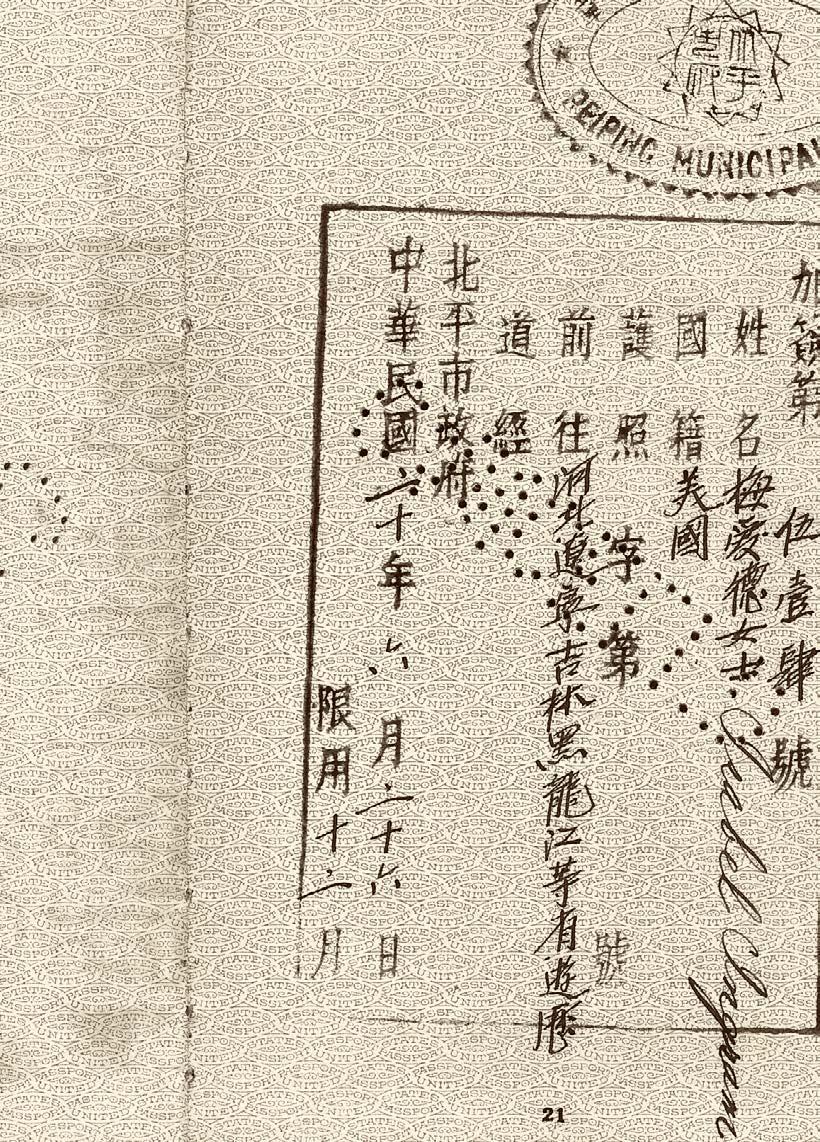 PEIPING MUNICIPAL
北平
加簽第 伍壹肆號
姓名 梅愛德女士 Isabel Ingram
國籍 美國
護照 字第 號
前往 河北遼寧吉林黑龍江等省遊歷
道經
北平市政府
中華民國二十年六月二十六日
限用十二月
21